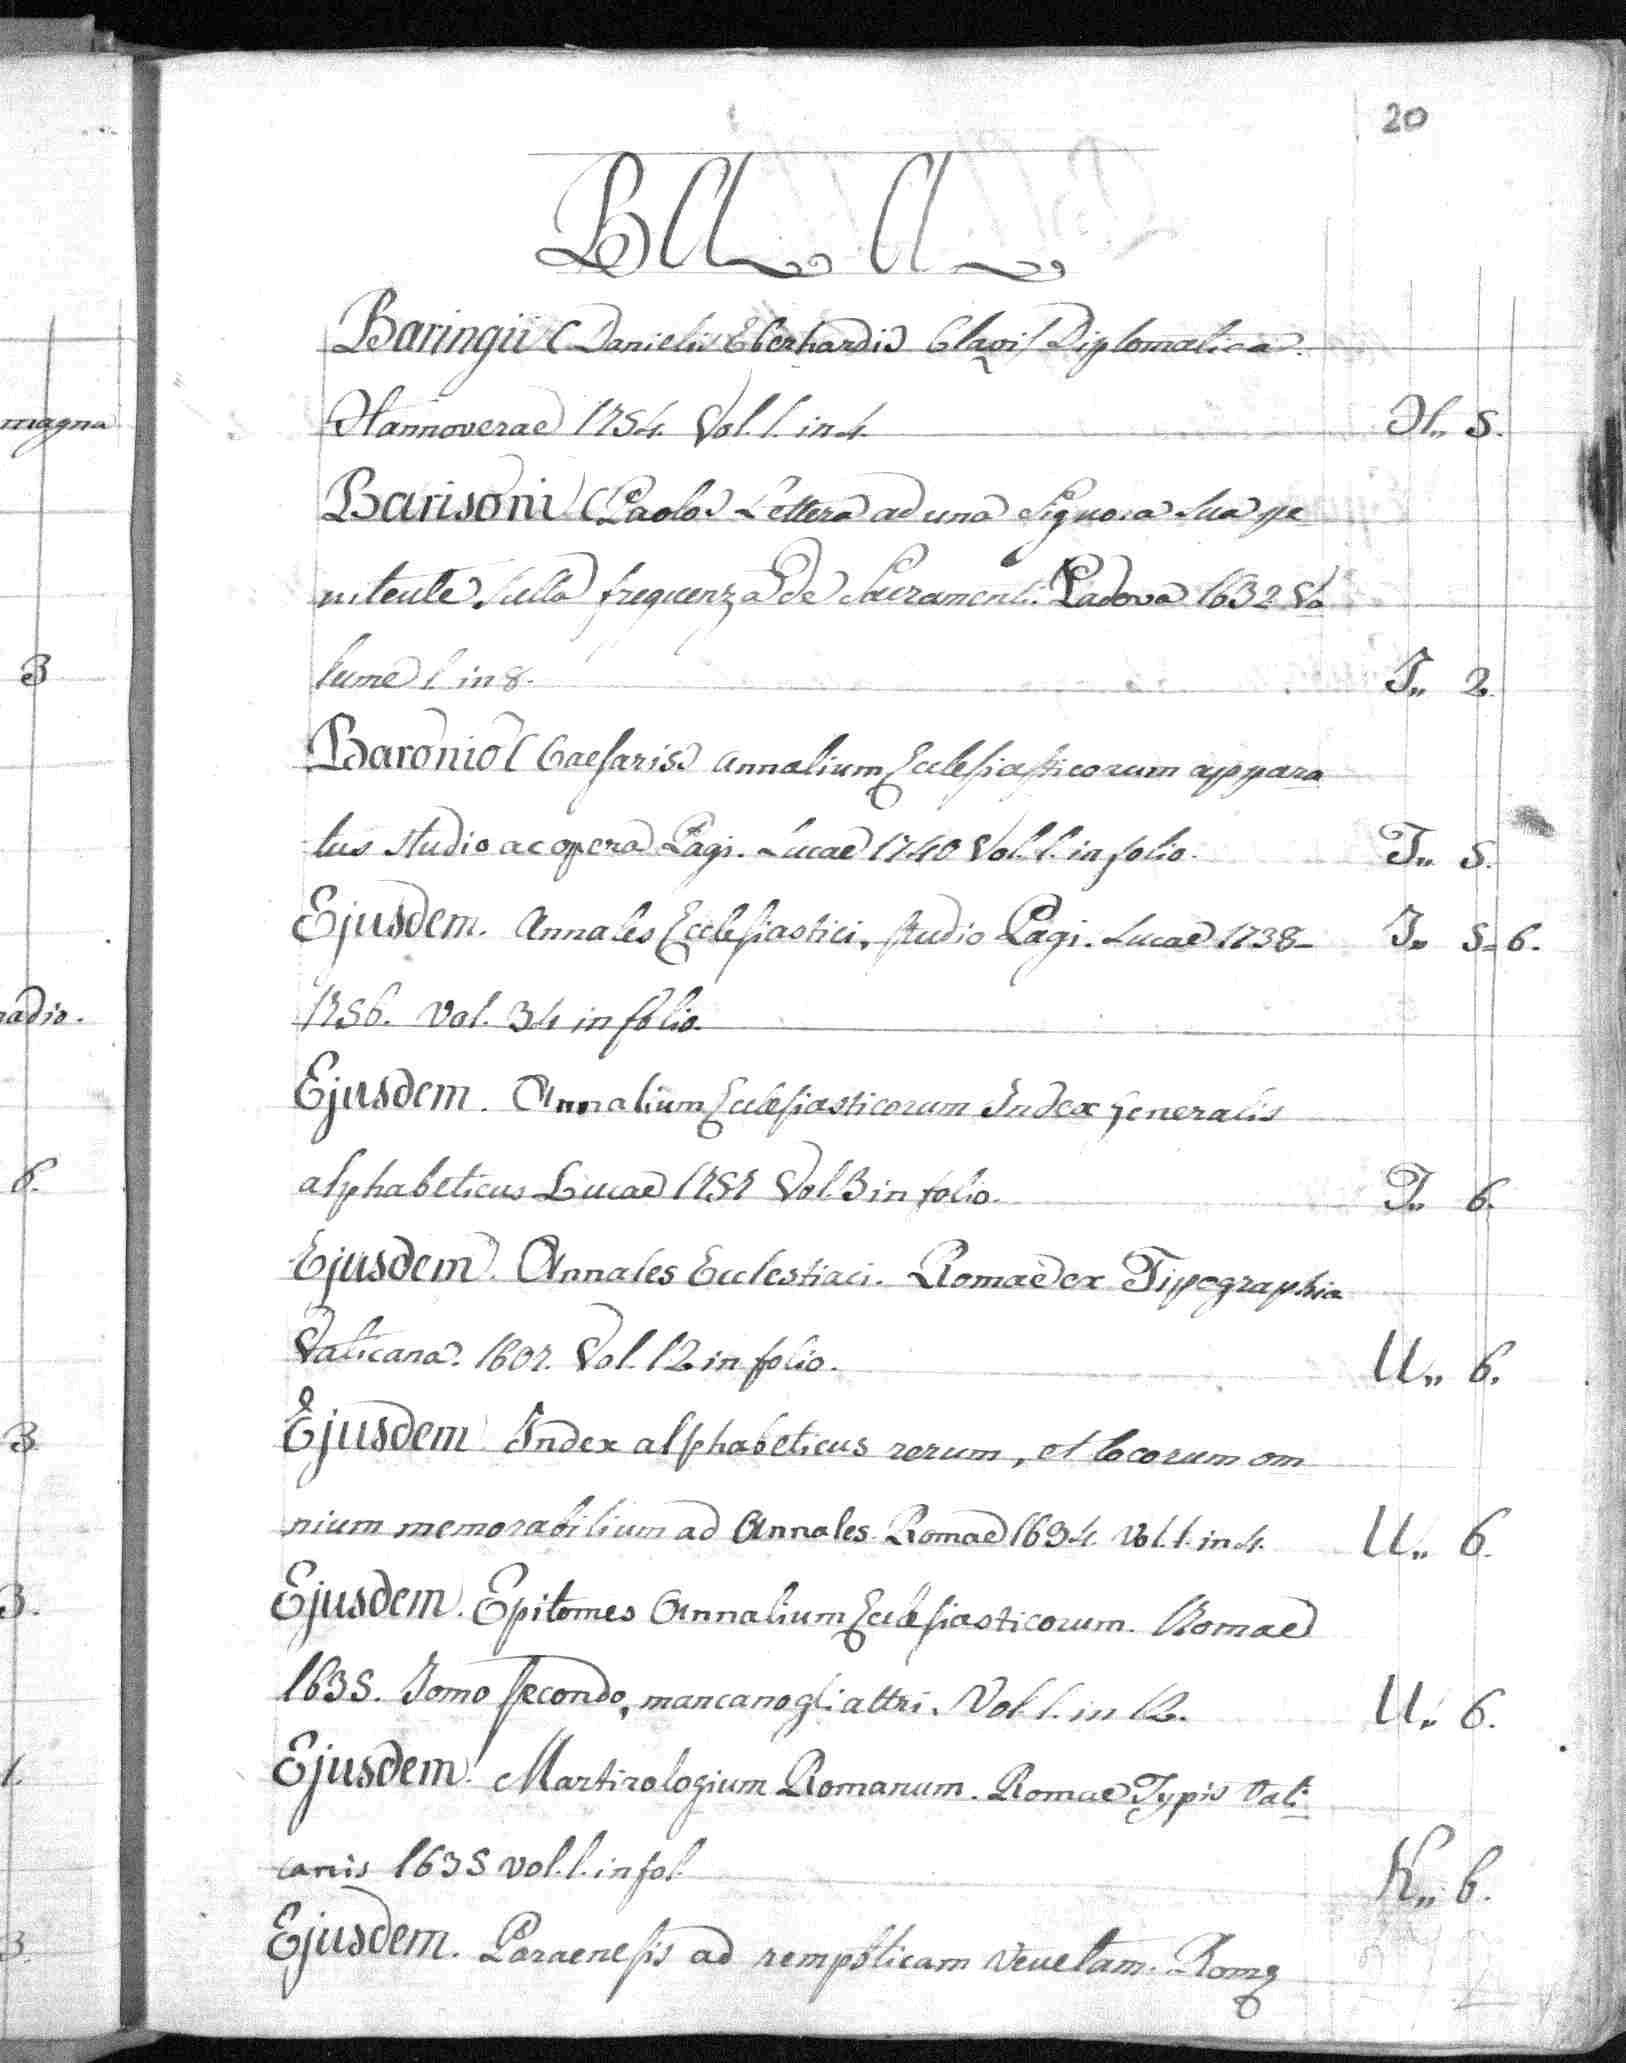 20
BA A
Baringii (Danielis Eberhardi) Clavis Diplomatica.
Hannoverae 1754. Vol. 1. in 4. H„ 5.
Barisoni (Paolo) Lettera ad una Signora sua pe
nitente sulla frequenza de Sacramenti. Padova 1632 Vo
lume 1. in 8. T„ 2.
Baronio (Caesaris) annalium Ecclesiasticorum appara
tus studio ac opera Pagi. Lucae 1740 Vol. 1. in folio. T„ 5.
Ejusdem. Annales Ecclesiastici, studio Pagi. Lucae 1738- T„ 5=6.
1756. Vol. 34 in folio.
Ejusdem. Annalium Ecclesiasticorum Index Generalis
alphabeticus Lucae 1757 Vol. 3 in folio. T„ 6.
Ejusdem. Annales Ecclestiaci. Romae ex Tipographia
Vaticana. 1607. Vol. 12 in folio. U„ 6.
Ejusdem Index alphabeticus rerum, et locorum om
nium memorabilium ad Annales Romae 1694 Vol. 1. in 4. U„ 6.
Ejusdem. Epitomes Annalium Ecclesiasticorum. Romae
1635. Tomo secondo, mancano gli altri. Vol 1. in 12. U„ 6.
Ejusdem. Martirologium Romanum. Romae Typis Vati
canis 1635 vol. 1. in fol. K„ 6.
Ejusdem. Paraenesis ad rempblicam Venetam. Romę
magna
3
radio.
6.
3
3.
1.
3.